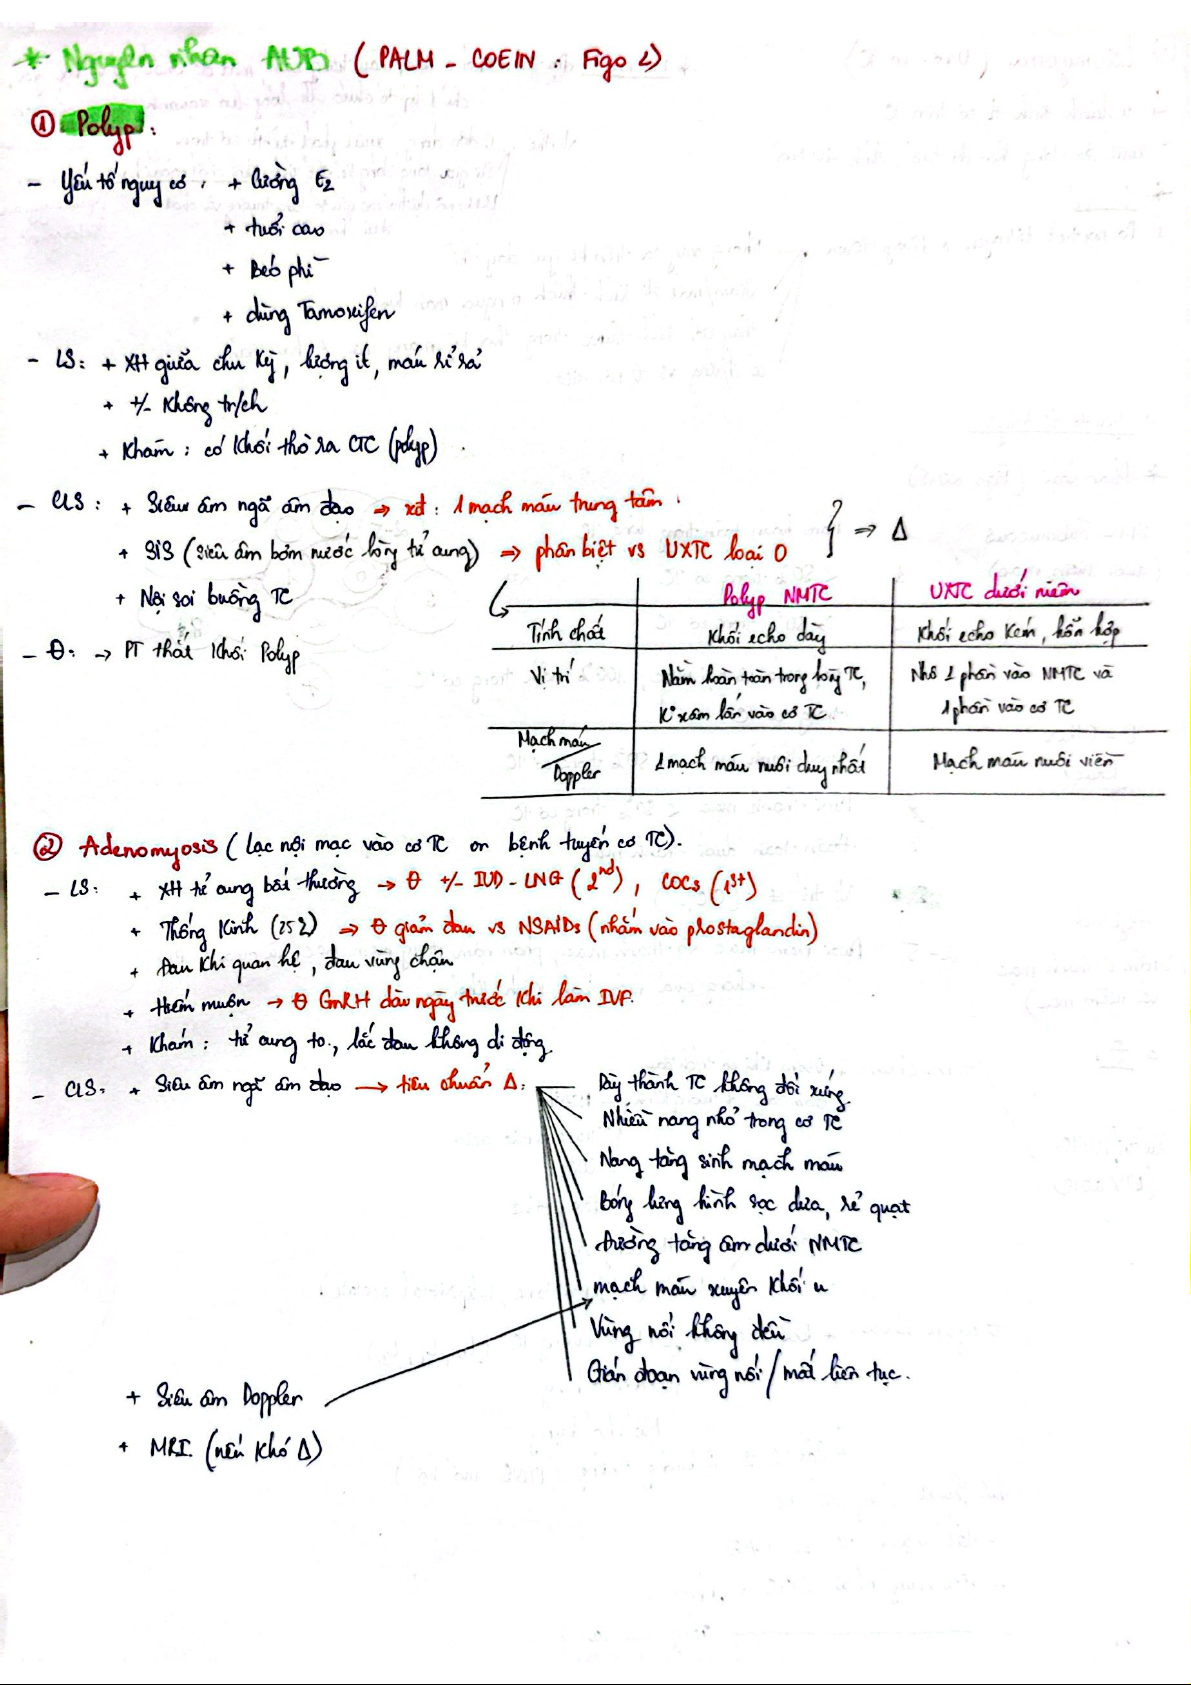 * Nguyên nhân AUB (PALM - COEIN : Figo 2)
① Polyp :
- Yếu tố nguy cơ : + Cường E2
+ tuổi cao
+ Béo phì
+ dùng Tamoxifen
- LS: + XH giữa chu kỳ, lượng ít, máu rỉ rả
+ +/- Không tr/ch
+ Khám : có khối thò ra CTC (polyp)
- CLS : + Siêu âm ngã âm đạo ⇒ xđ : 1 mạch máu trung tâm.
+ SIS (siêu âm bơm nước lòng tử cung) ⇒ phân biệt vs UXTC loại 0 } ⇒ Δ
+ Nội soi buồng TC
Polyp NMTC | UXTC dưới niêm
Tính chất | Khối echo dày | Khối echo kém, hỗn hợp
- θ: → PT thắt khối Polyp
Vị trí | Nằm hoàn toàn trong lòng TC, | Nhô 1 phần vào NMTC và
K° xâm lấn vào cơ TC | 1 phần vào cơ TC
Mạch máu / Doppler | 1 mạch máu nuôi duy nhất | Mạch máu nuôi viền
② Adenomyosis (Lạc nội mạc vào cơ TC or bệnh tuyến cơ TC).
- LS: + XH tử cung bất thường → θ +/- IUD - LNG (2nd), COCs (1st)
+ Thống kinh (25%) ⇒ θ giảm đau vs NSAIDs (nhắm vào prostaglandin)
+ Đau khi quan hệ, đau vùng chậu
+ Hiếm muộn → θ GnRH dài ngày trước khi làm IVF.
+ Khám : tử cung to, lắc đau không di động.
- CLS: + Siêu âm ngã âm đạo → tiêu chuẩn Δ:
Dày thành TC không đối xứng.
Nhiều nang nhỏ trong cơ TC
Nang tăng sinh mạch máu
Bóng lưng hình sọc dưa, rẻ quạt
Đường tăng âm dưới NMTC
mạch máu xuyên khối u
Vùng nối không đều
Gián đoạn vùng nối / mất liên tục.
+ Siêu âm Doppler
+ MRI. (nếu khó Δ)